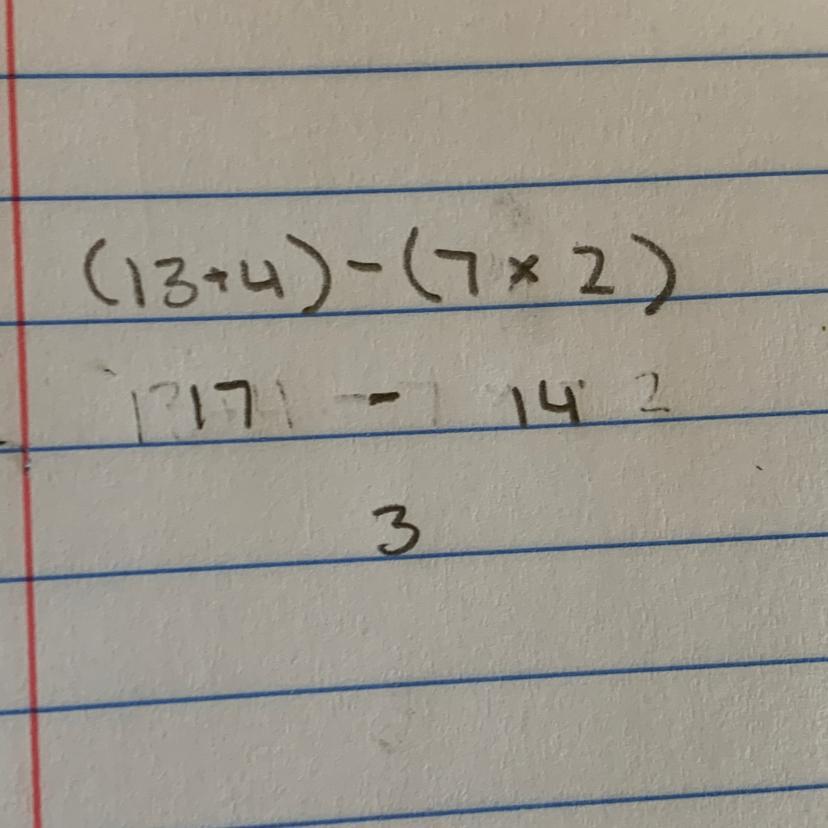 (13+4)-(7×2)
17 - 14
3